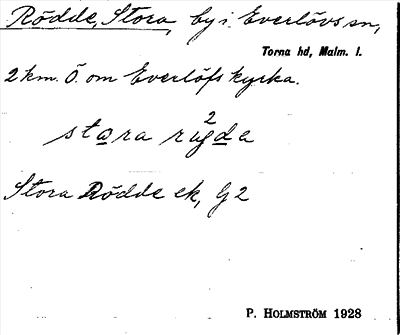 Rödde, Stora, by i Everlövs sn,
Torna hd, Malm. l.
2 km. Ö. om Everlöfs kyrka.
Stora Rödde ek, G 2
P. HOLMSTRÖM 1928